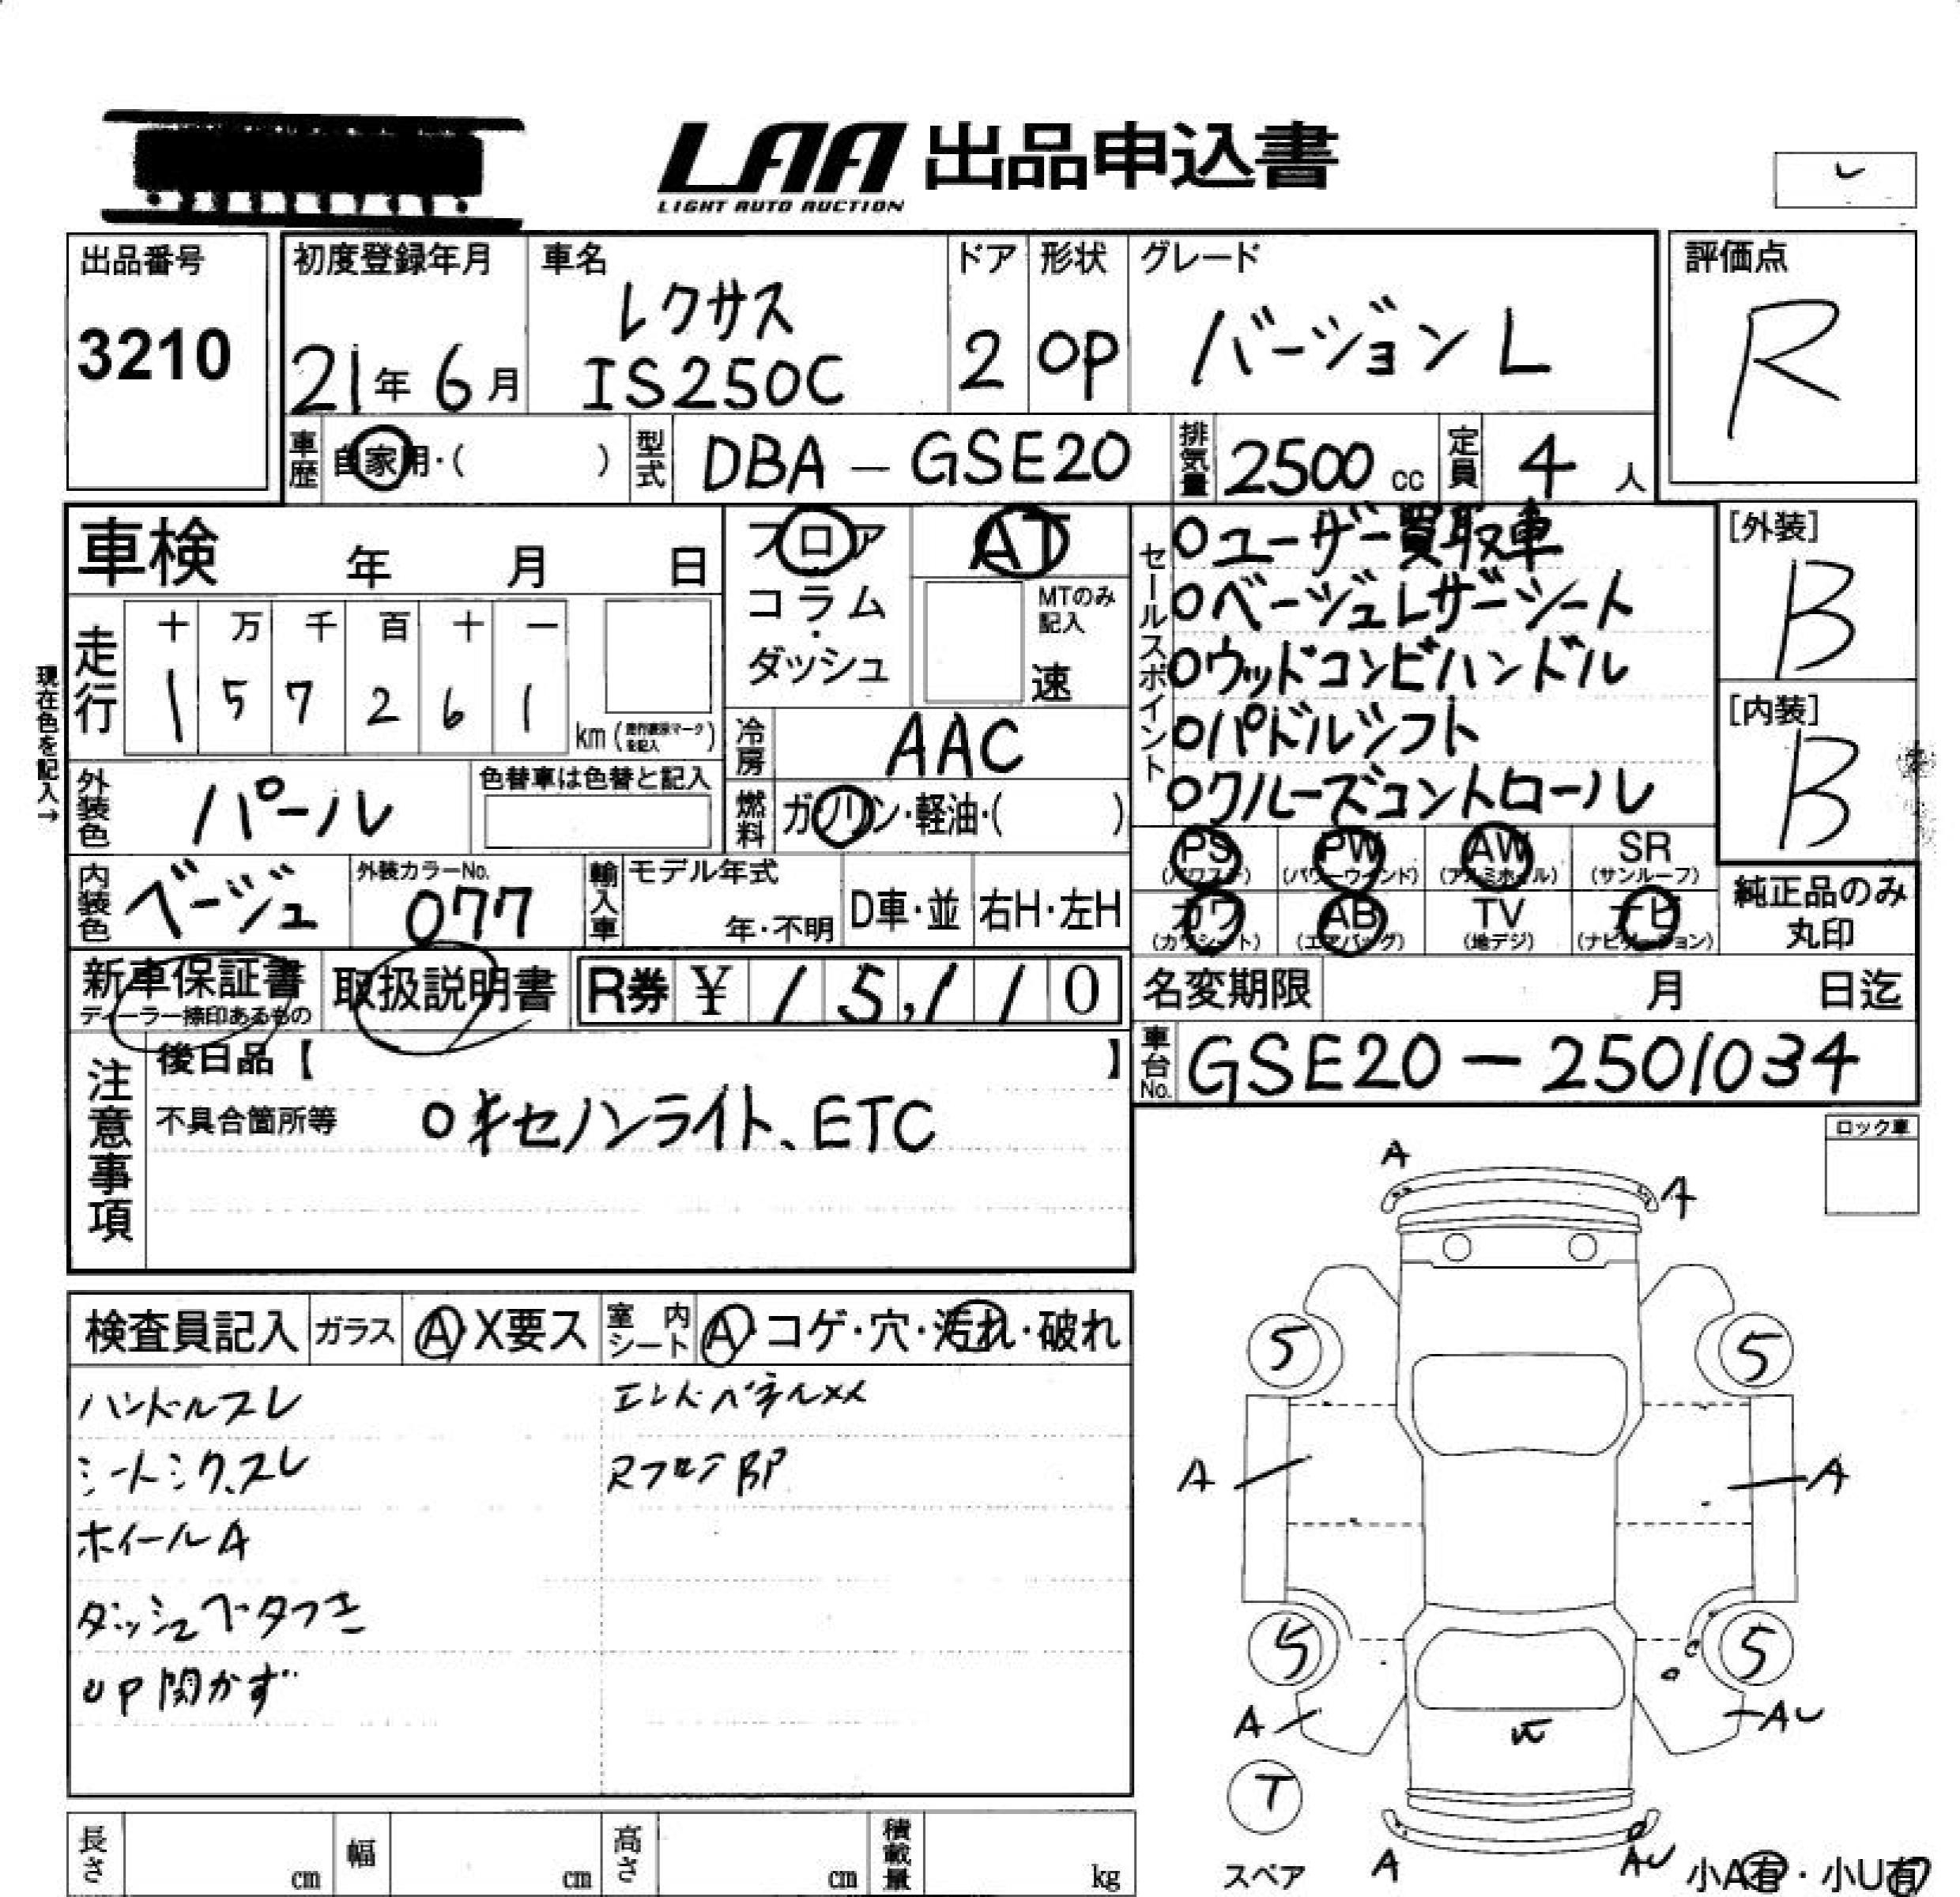 LAA 出品申込書
LIGHT AUTO AUCTION
出品番号
3210
初度登録年月
21年 6月
車名
レクサス
IS250C
ドア
2
形状
OP
グレード
バージョン L
評価点
R
車歴 自家用・( )
型式 DBA-GSE20
排気量 2500 cc
定員 4 人
車検 年 月 日
フロア
コラム
・
ダッシュ
AT
MTのみ
記入
速
セールスポイント
○ユーザー買取車
○ベージュレザーシート
○ウッドコンビハンドル
○パドルシフト
○クルーズコントロール
[外装]
B
[内装]
B
現在色を記入→
走行
十 万 千 百 十 一
1 5 7 2 6 1
km (走行表示マークを記入)
冷房 AAC
外装色 パール
色替車は色替と記入
燃料 ガソリン・軽油・( )
内装色 ベージュ
外装カラーNo.
077
輸入車
モデル年式
年・不明
D車・並
右H・左H
PS
(パワステ)
PW
(パワーウインド)
AW
(アルミホイル)
SR
(サンルーフ)
カワ
(カワシート)
AB
(エアバッグ)
TV
(地デジ)
ナビ
(ナビゲーション)
純正品のみ
丸印
新車保証書
ディーラー捺印あるもの
取扱説明書
R券 ¥ 15,110
名変期限 月 日迄
車台No. GSE20-2501034
注意事項
後日品【 】
不具合箇所等 ○キセノンライト、ETC
ロック車
検査員記入
ガラス A・X要ス
室内シート A・コゲ・穴・汚れ・破れ
ハンドルスレ
シートシワ、スレ
ホイールA
ダッシュベタつき
UP開かず
エンドパネルメメ
A
A
5
5
A
A
5
5
A
AU
T
スペア
A
AU
小A有・小U有
長さ cm
幅 cm
高さ cm
積載量 kg